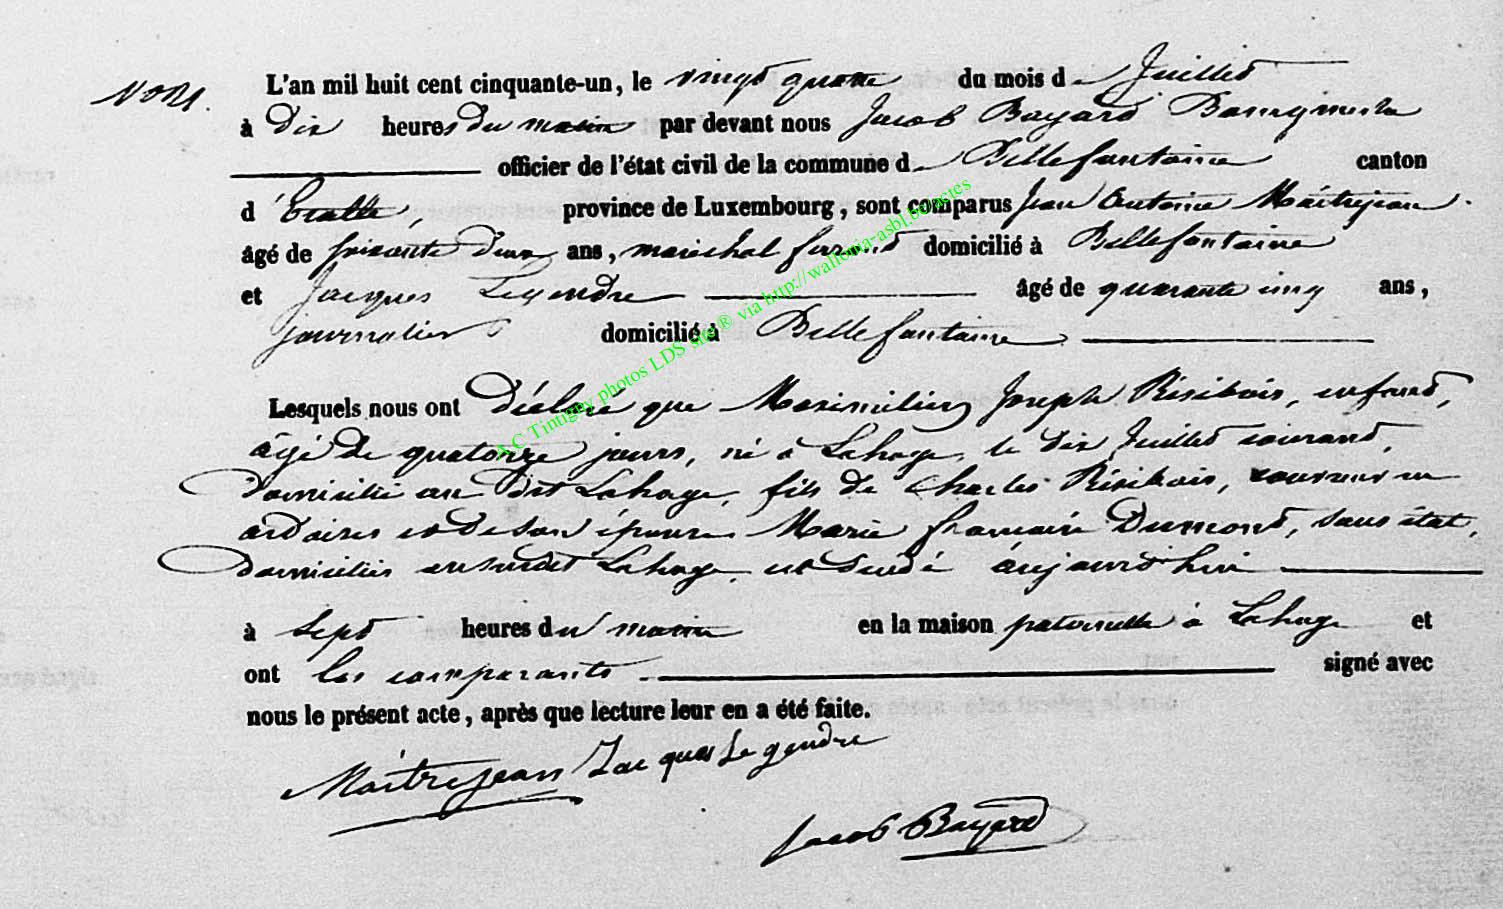 NORS.
L'an mil huit cent cinquante-un, le vingt quatre du mois d Juillet
à Dix heures du matin par devant nous Jacob Bayard Bourgmestre
officier de l'état civil de la commune d Bellefontaine canton
d Etalle province de Luxembourg, sont comparus Jean Antoine Maîtrejean
âgé de soixante deux ans, maréchal ferrant domicilié à Bellefontaine
et Jacques Legendre âgé de quarante cinq ans,
journalier domicilié à Bellefontaine
Lesquels nous ont Déclaré que Maximilien Joseph Résibois, enfant,
âgé de quatorze jours, né à Lahage, le dix Juillet courant,
domicilié au dit Lahage, fils de Charles Résibois, couvreur en
ardoises et de son épouse Marie françoise Dumont, sans état,
domiciliés au susdit Lahage, est décédé aujourd'hui
à sept heures du matin en la maison paternelle à Lahage et
ont les comparants signé avec
nous le présent acte, après que lecture leur en a été faite.
Maîtrejean Jacques Legendre
Jacob Bayard
A.C Tintigny photos LDS site ® via http://wallonia-asbl.be/actes